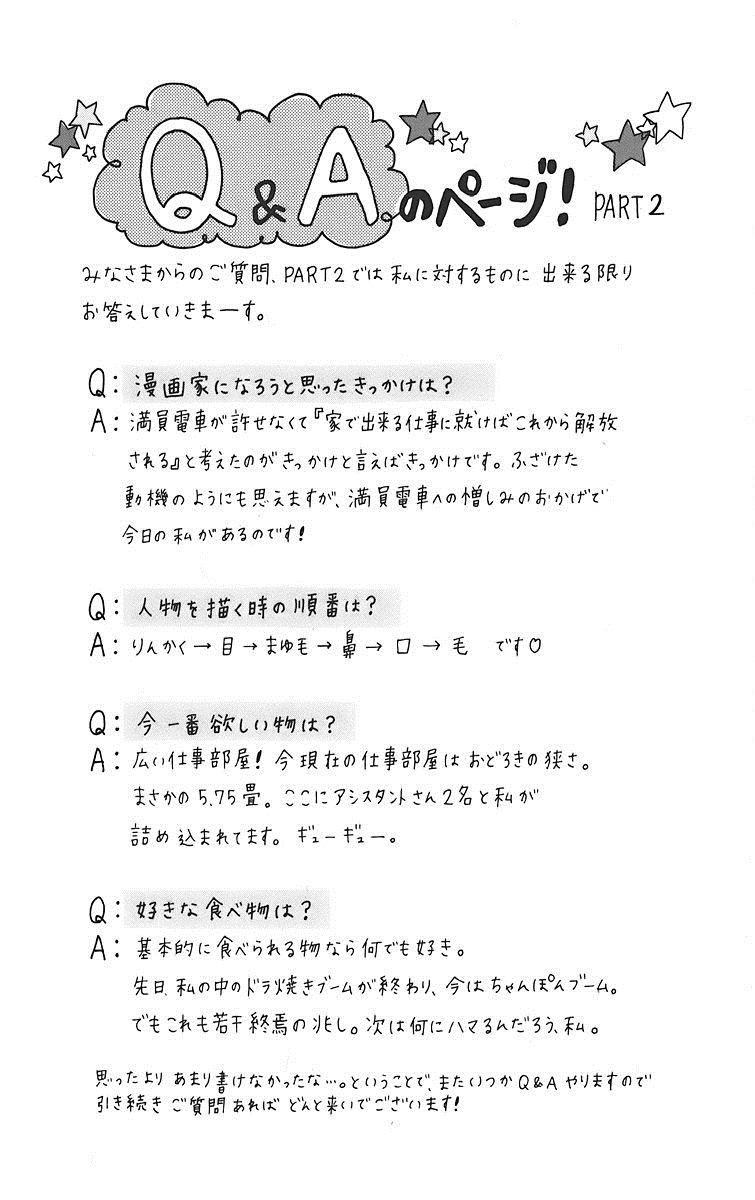 Q&Aのページ! PART2
みなさまからのご質問、PART2では私に対するものに出来る限り
お答えしていきまーす。
Q: 漫画家になろうと思ったきっかけは?
A: 満員電車が許せなくて『家で出来る仕事に就けばこれから解放
される』と考えたのがきっかけと言えばきっかけです。ふざけた
動機のようにも思えますが、満員電車への憎しみのおかげで
今日の私があるのです!
Q: 人物を描く時の順番は?
A: りんかく→目→まゆ毛→鼻→口→毛 です♡
Q: 今一番欲しい物は?
A: 広い仕事部屋!今現在の仕事部屋はおどろきの狭さ。
まさかの5.75畳。ここにアシスタントさん2名と私が
詰め込まれてます。ギューギュー。
Q: 好きな食べ物は?
A: 基本的に食べられる物なら何でも好き。
先日、私の中のドラ焼きブームが終わり、今はちゃんぽんブーム。
でもこれも若干終焉の兆し。次は何にハマるんだろう、私。
思ったよりあまり書けなかったな…。ということで、またいつかQ&Aやりますので
引き続きご質問あればどんと来いでございます!